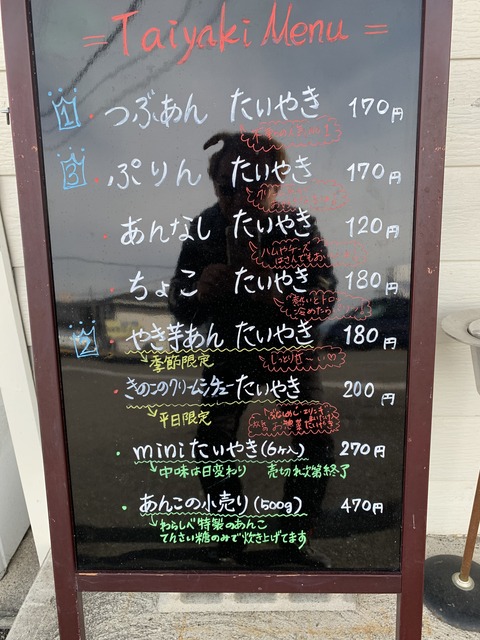 = Taiyaki Menu =
1 つぶあん たいやき 170円
3 ぷりん たいやき 170円
あんなし たいやき 120円
ハムやチーズ
はさんでもお
ちょこ たいやき 180円
熱いとトロ
冷めたら
2 やき芋あん たいやき 180円
季節限定
しっとり甘〜い♡
きのこのクリームシチューたいやき 200円
平日限定
お惣菜たいやき
miniたいやき(6ヶ入) 270円
中味は日変わり 売切れ次第終了
あんこの小売り(500g) 470円
わらしべ特製のあんこ
てんさい糖のみで炊き上げてます